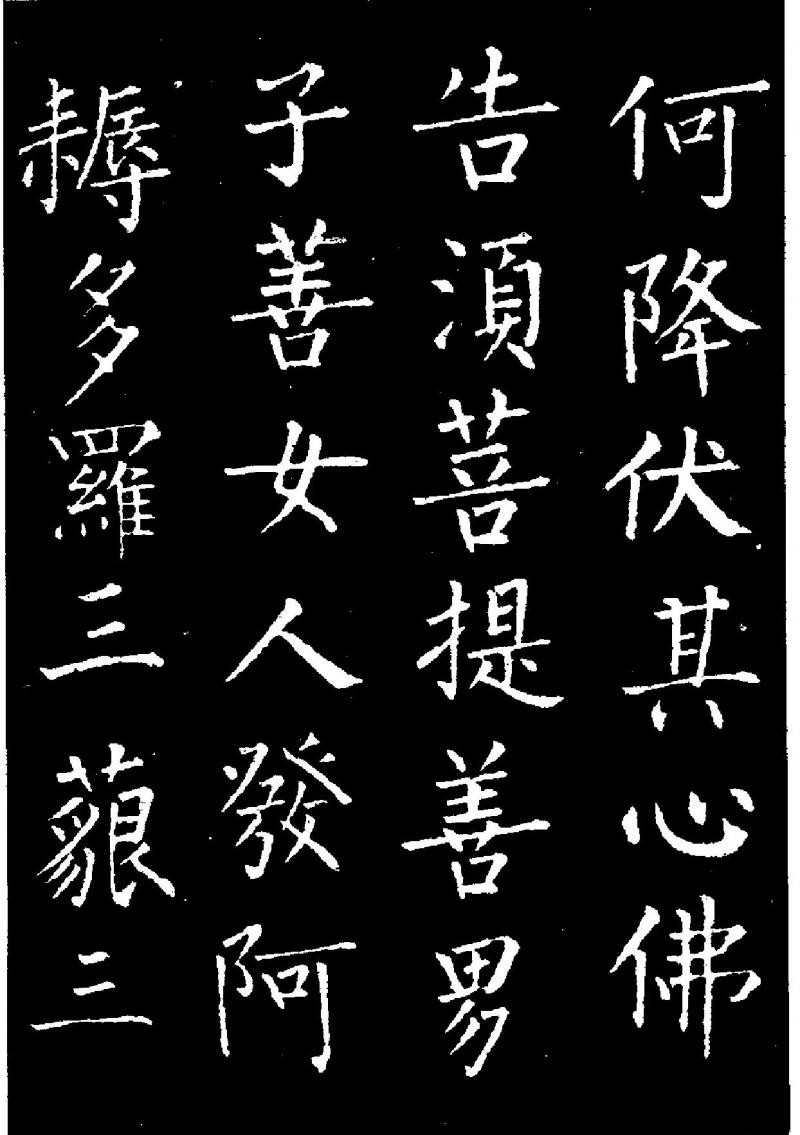 何降伏其心佛
告湏菩提善男
子善女人發阿
耨多羅三藐三